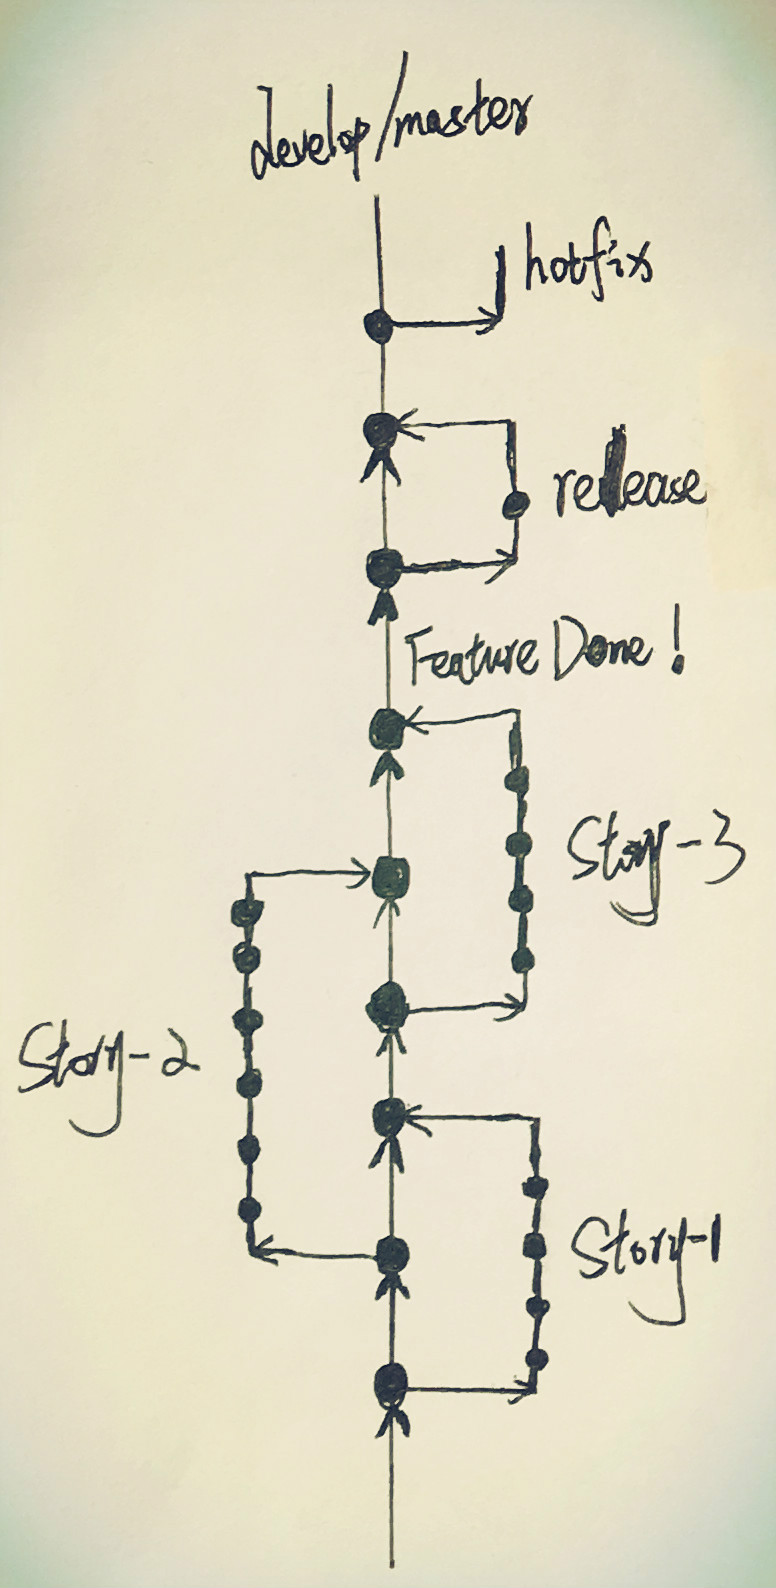 develop/master
hotfix
release
Feature Done!
Story-3
Story-2
Story-1